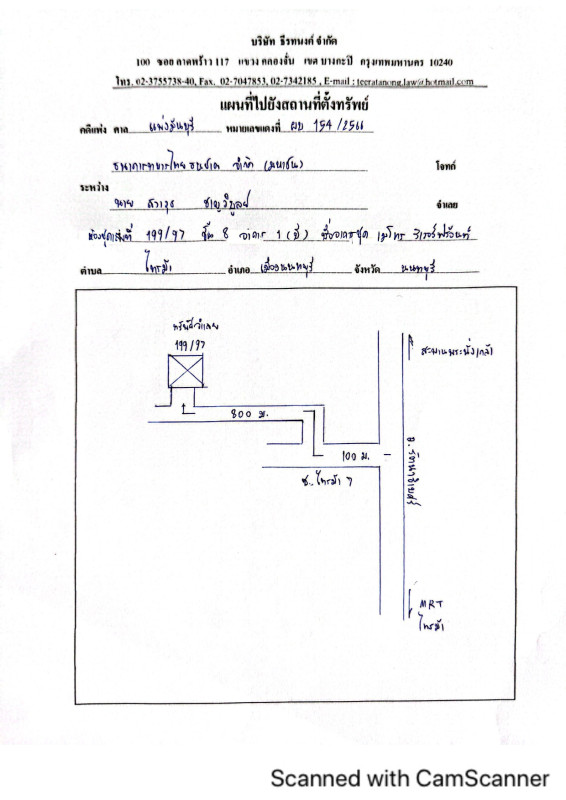 บริษัท ธีรทนงค์ จำกัด
100 ซอย ลาดพร้าว 117 แขวง คลองจั่น เขต บางกะปิ กรุงเทพมหานคร 10240
โทร. 02-3755738-40, Fax. 02-7047853, 02-7342185 , E-mail : teeratanong.law@hotmail.com
แผนที่ไปยังสถานที่ตั้งทรัพย์
คดีแพ่ง ศาล แพ่งมีนบุรี หมายเลขแดงที่ ผบ 154 /2566
ธนาคารทหารไทยธนชาต จำกัด (มหาชน) โจทก์
ระหว่าง
นาย จำเลย
ห้องชุดเลขที่ 199/97 ชั้น 8 อาคาร 1 (บี) ชื่ออาคารชุด เมโทร ริเวอร์ฟร้อนท์
ตำบล ไทรม้า อำเภอ เมืองนนทบุรี จังหวัด นนทบุรี
ทรัพย์จำเลย
199/97
สะพานพระนั่งเกล้า
800 ม.
100 ม.
ถ.รัตนาธิเบศร์
ซ.ไทรม้า 7
MRT
ไทรม้า
Scanned with CamScanner